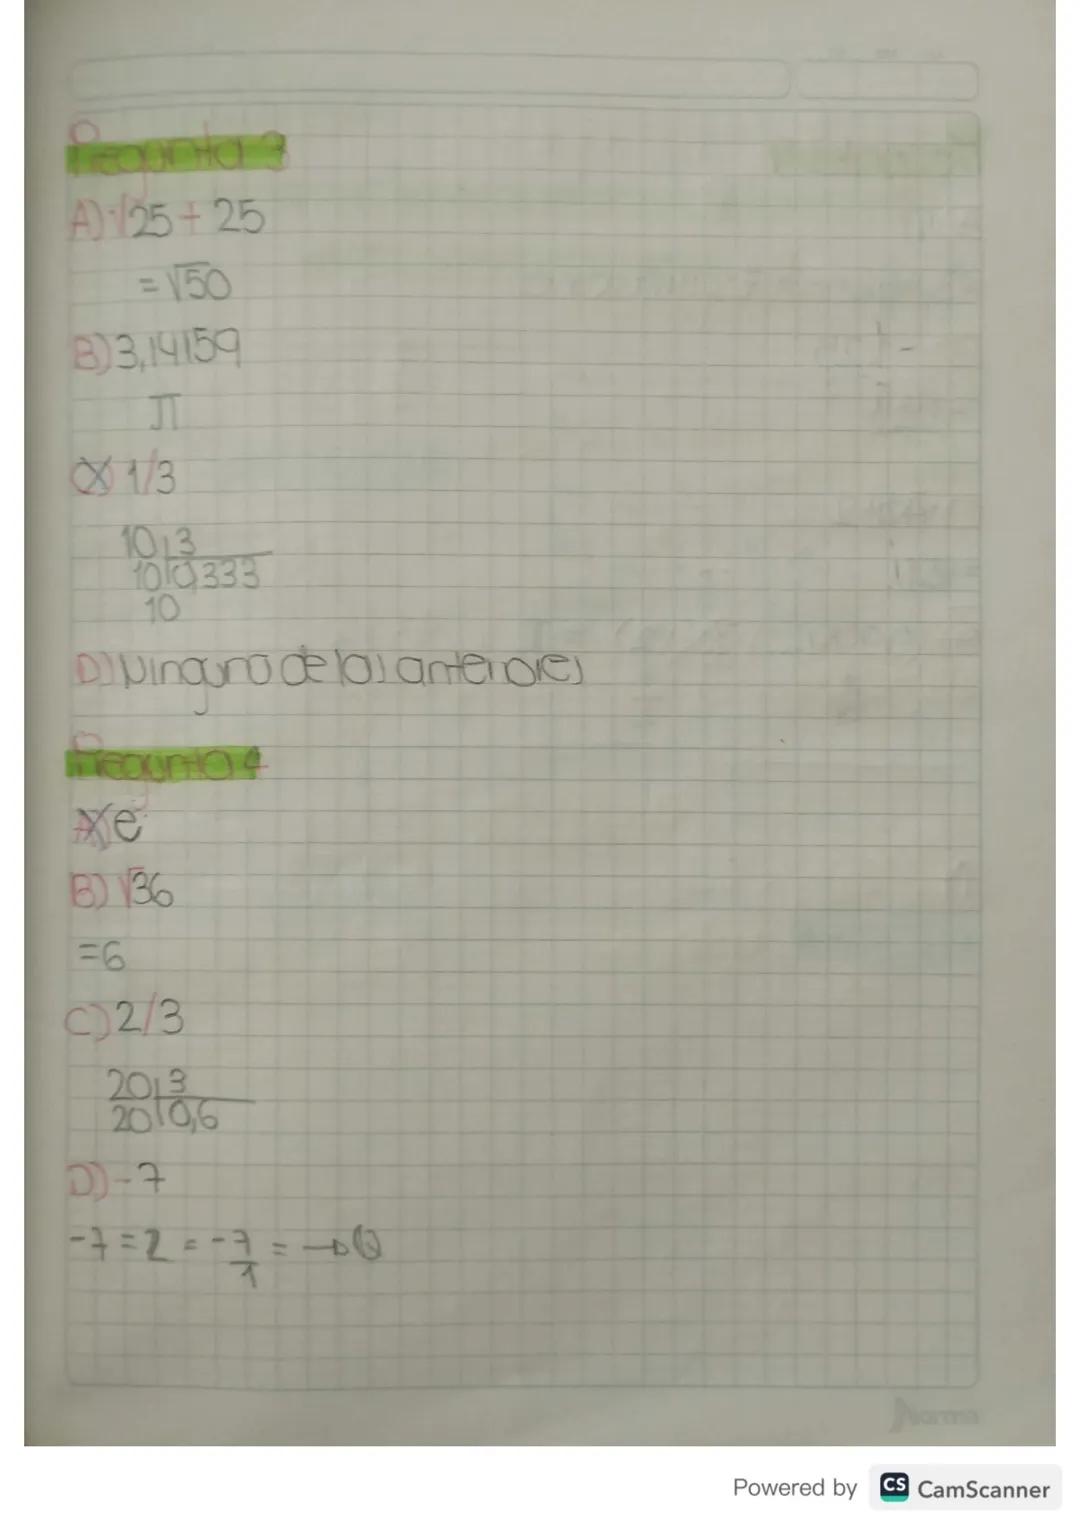 Pregunta 3
A) √25 + 25
= √50
B) 3,14159
π
C) 1/3
10 3
10 0,333
10
D) Ninguno de los anteriores
Pregunta 4
A) e
B) √36
= 6
C) 2/3
20 3
20 0,6
D) -7
-7 = Z = -7/1 = → Q
Norma
Powered by CS CamScanner